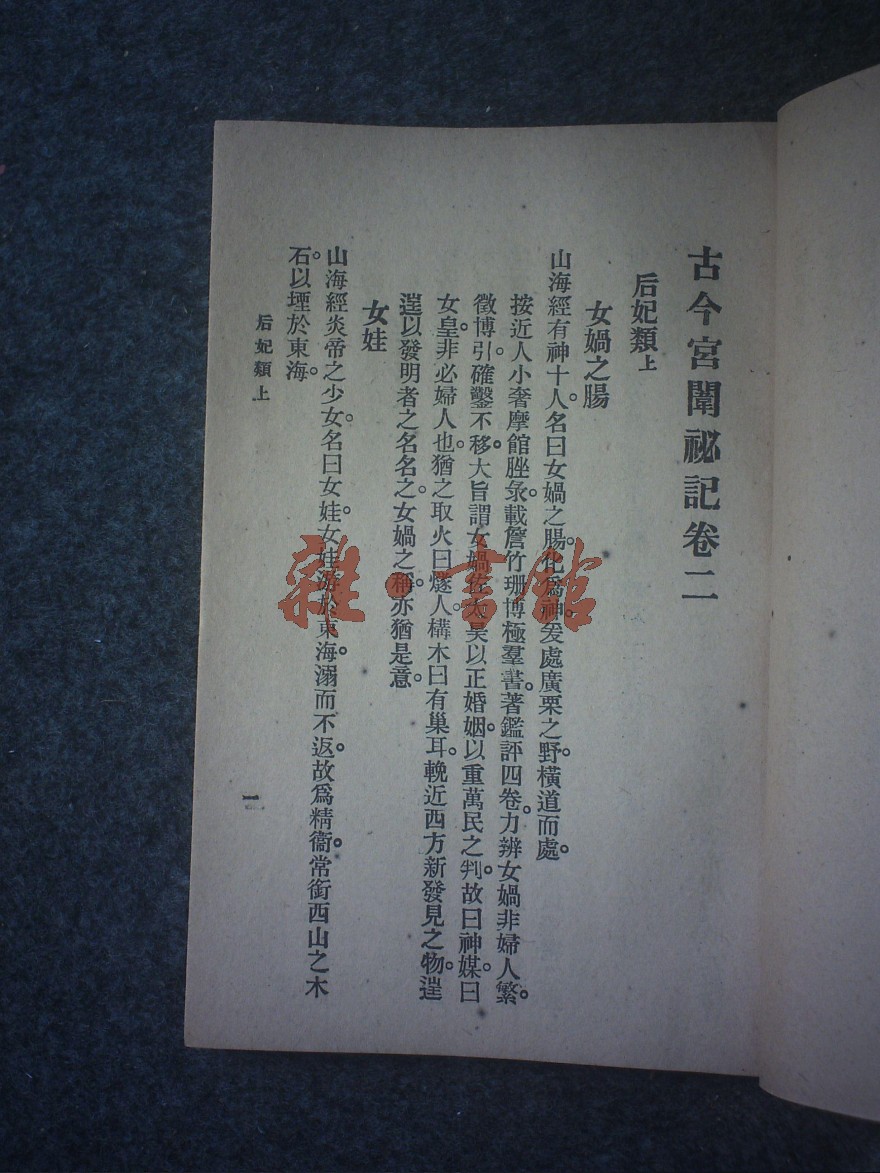 古今宮闈祕記卷二
后妃類上
女媧之腸
山海經有神十人。名曰女媧之腸。化爲神。爰處廣栗之野。橫道而處。
按近人小奢摩館脞彔。載詹竹珊博極羣書。著鑑評四卷。力辨女媧非婦人繁
徵博引。確鑿不移。大旨謂女媧佐太昊以正婚姻。以重萬民之判。故曰神媒。曰
女皇。非必婦人也。猶之取火曰燧人。構木曰有巢耳。輓近西方新發見之物。逞
逞以發明者之名名之。女媧之稱。亦猶是意。
女娃
山海經炎帝之少女。名曰女娃。女娃游於東海。溺而不返。故爲精衞。常銜西山之木
石。以堙於東海。
后妃類上
一
雜·書館